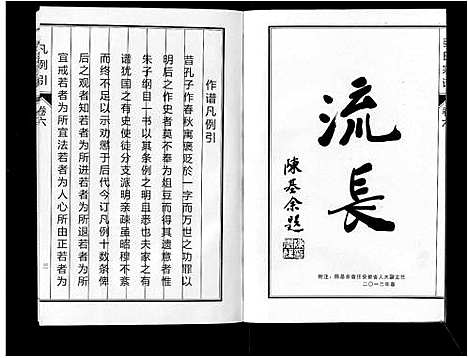 流长
陈基余题
附注：陈基余曾任安徽省人大副主任
二〇一三年春
卷六
作谱凡例引
昔孔子作春秋寓褒贬于一字而万世之功罪以
明后之作史者莫不奉为俎豆而得其遗意者惟
朱子纲目一书以其条例之明且悉也夫家之有
谱犹国之有史使徒分支派明亲疎虽昭穆不紊
而终不足以示劝惩于后代今订凡例十数条俾
后之观者知若者为所进若者为所退若者为所
宜戒若者为所宜法若者为人心所由正若者为
凡例引
卷六